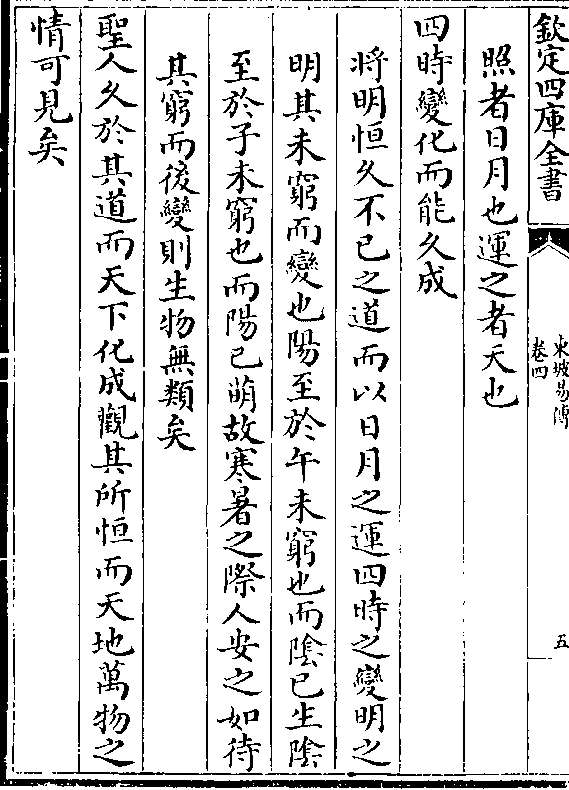 欽定四庫全書
東坡易傳
卷四
五
照者日月也運之者天也
四時變化而能久成
將明恒久不已之道而以日月之運四時之變明之
明其未窮而變也陽至於午未窮也而陰已生陰
至於子未窮也而陽已萌故寒暑之際人安之如待
其窮而後變則生物無類矣
聖人久於其道而天下化成觀其所恒而天地萬物之
情可見矣